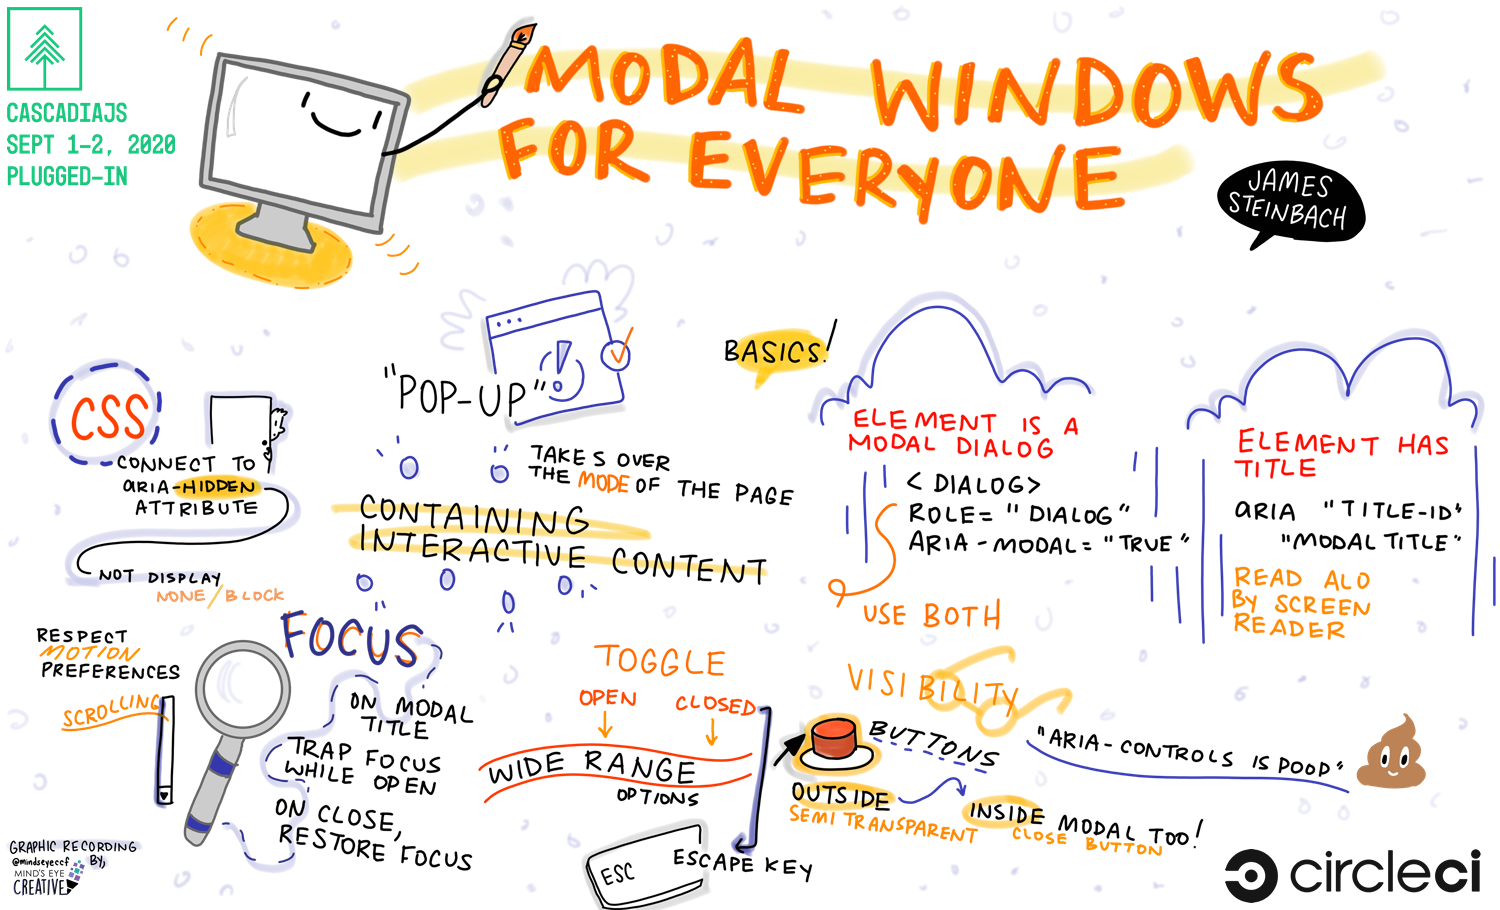 CASCADIAJS
SEPT 1-2, 2020
PLUGGED-IN
MODAL WINDOWS
FOR EVERYONE
JAMES
STEINBACH
CSS
CONNECT TO
aRIA-HIDDEN
ATTRIBUTE
NOT DISPLAY
NONE/BLOCK
"POP-UP"
TAKES OVER
THE MODE OF THE PAGE
CONTAINING
INTERACTIVE CONTENT
BASICS!
ELEMENT IS A
MODAL DIALOG
< DIALOG>
ROLE= "DIALOG"
ARIA-MODAL= "TRUE"
USE BOTH
ELEMENT HAS
TITLE
aRIA "TITLE-ID"
"MODAL TITLE"
READ ALO
BY SCREEN
READER
RESPECT
MOTION
PREFERENCES
SCROLLING
FOCUS
ON MODAL
TITLE
TRAP FOCUS
WHILE OPEN
ON CLOSE,
RESTORE FOCUS
TOGGLE
OPEN CLOSED
WIDE RANGE
OPTIONS
ESC
ESCAPE KEY
VISIBILITY
BUTTONS
OUTSIDE
SEMITRANSPARENT
INSIDE MODAL TOO!
CLOSE BUTTON
"ARIA-CONTROLS IS POOP"
GRAPHIC RECORDING
BY,
@mindseyeccf
MIND'S EYE
CREATIVE
circleci